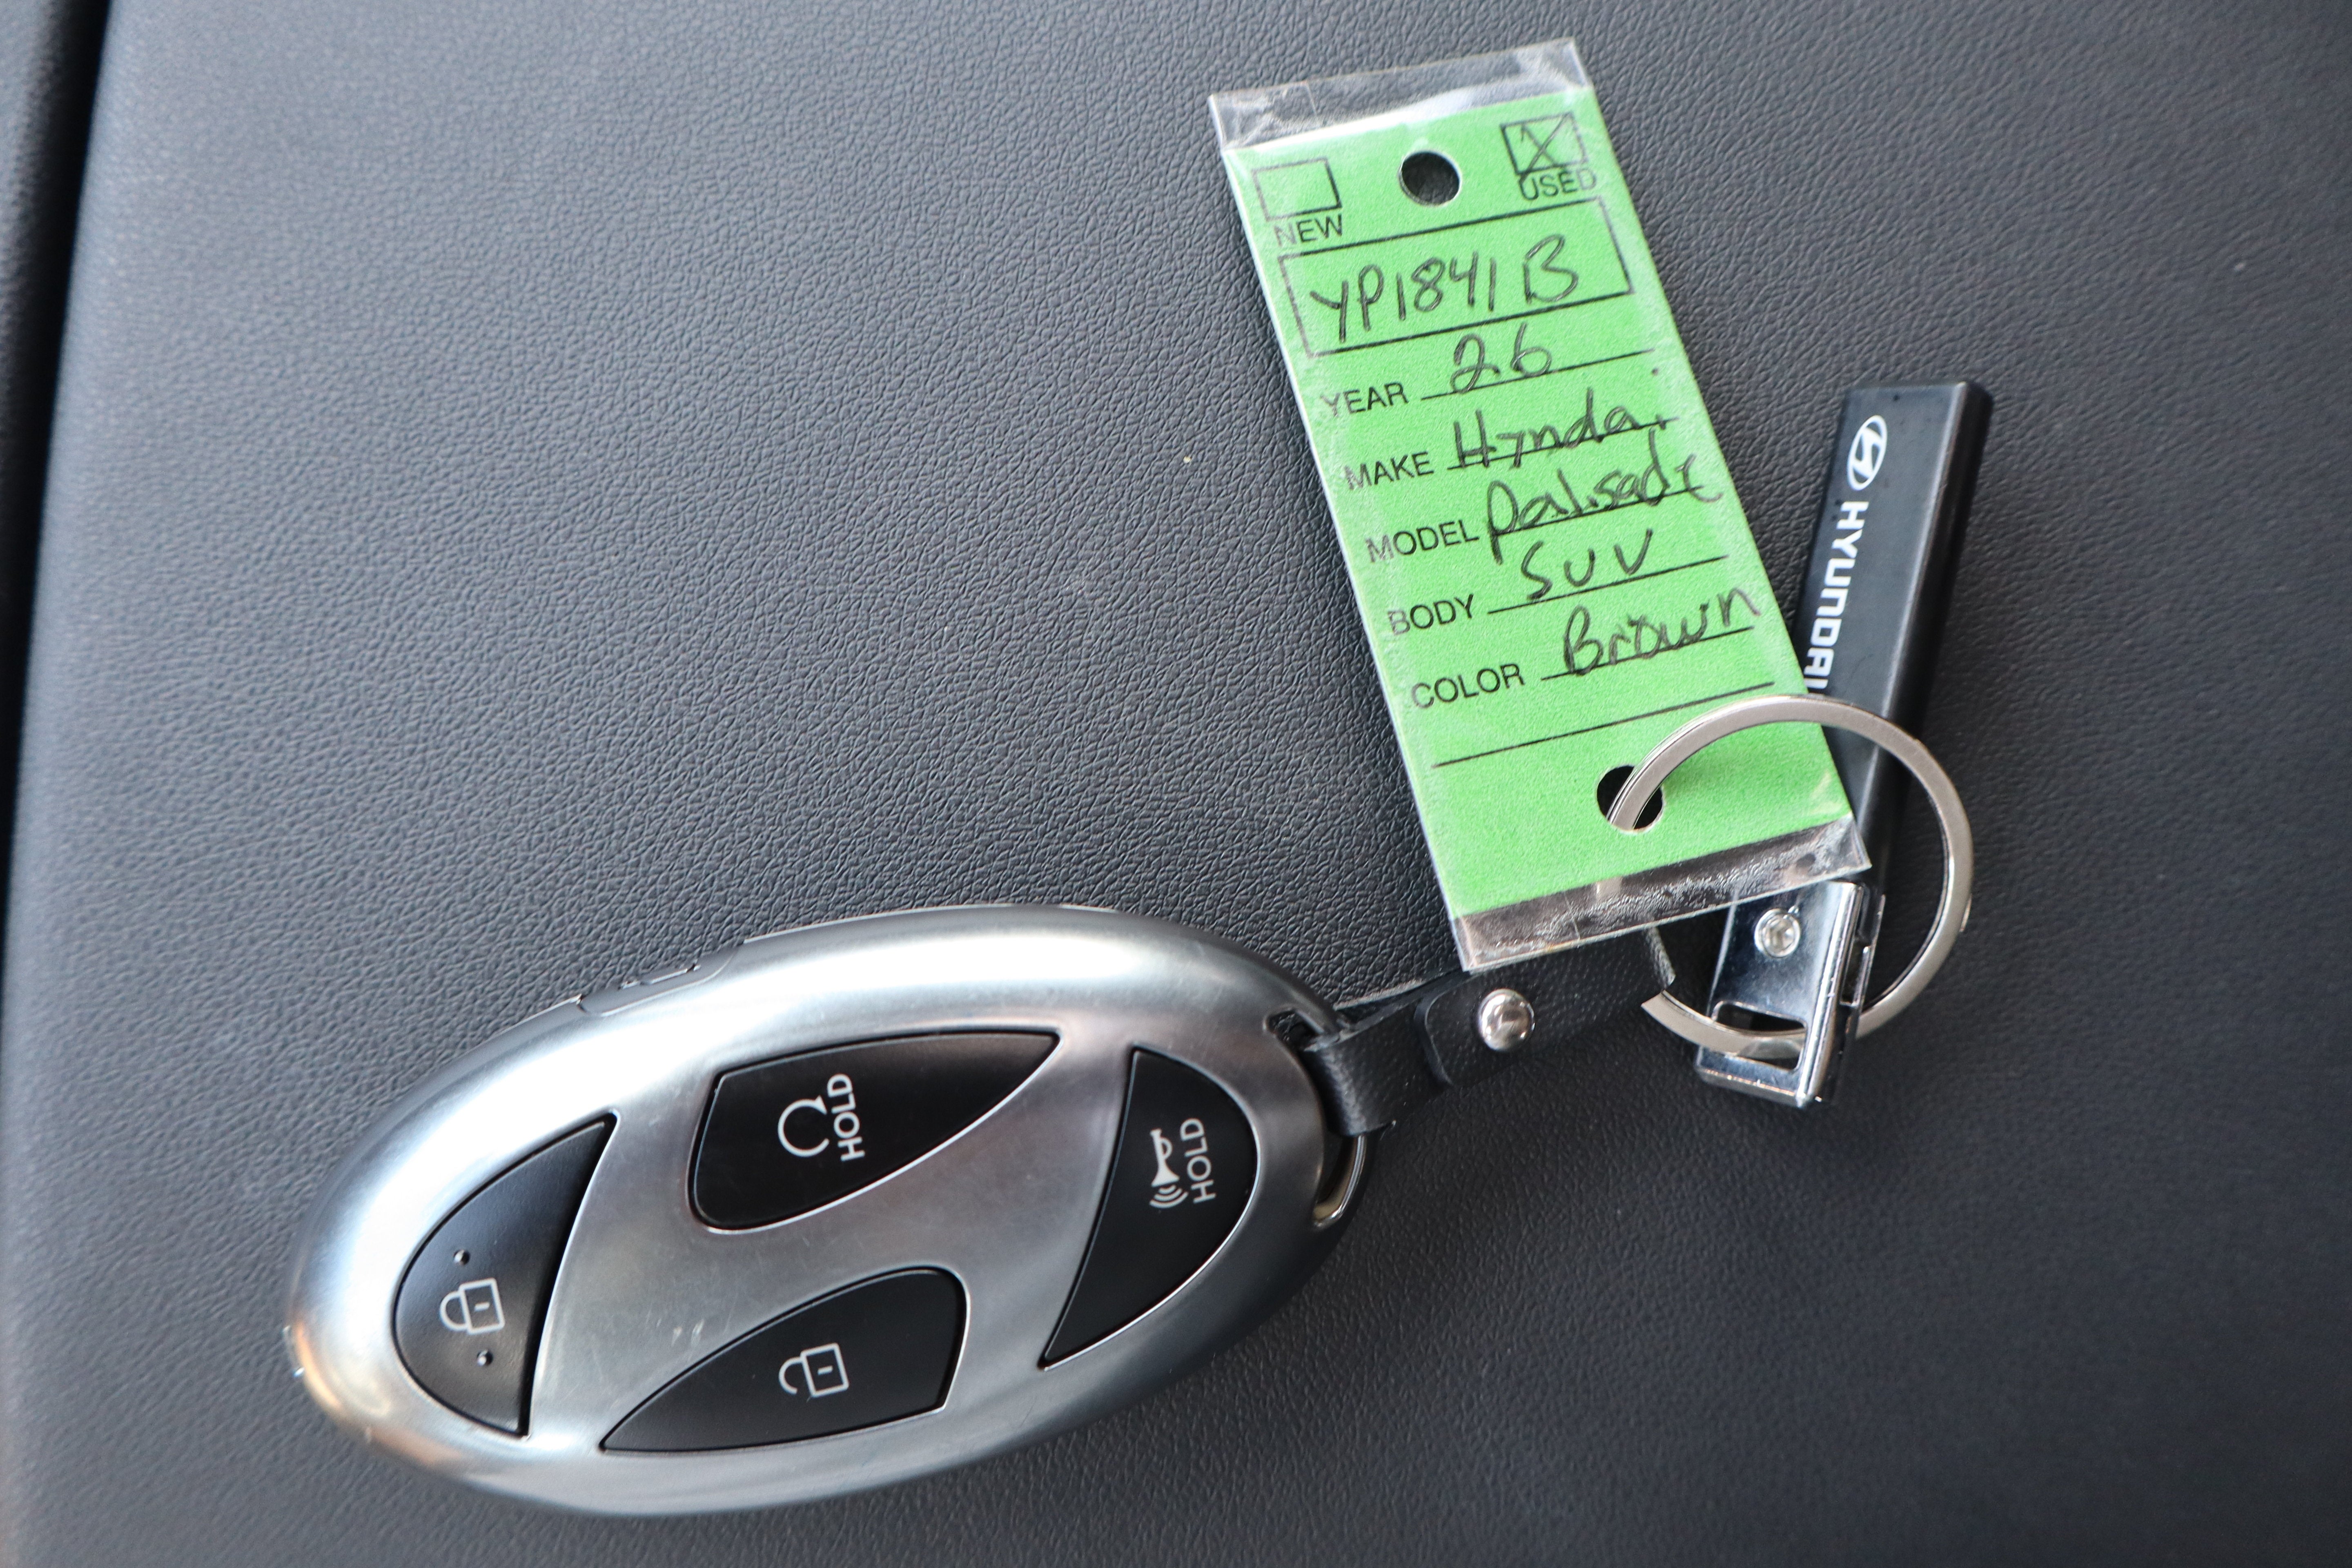 NEW
USED
YP1841B
YEAR 26
MAKE Hynda.
MODEL Palisade
BODY SUV
COLOR Brown
HYUNDAI
HOLD
HOLD